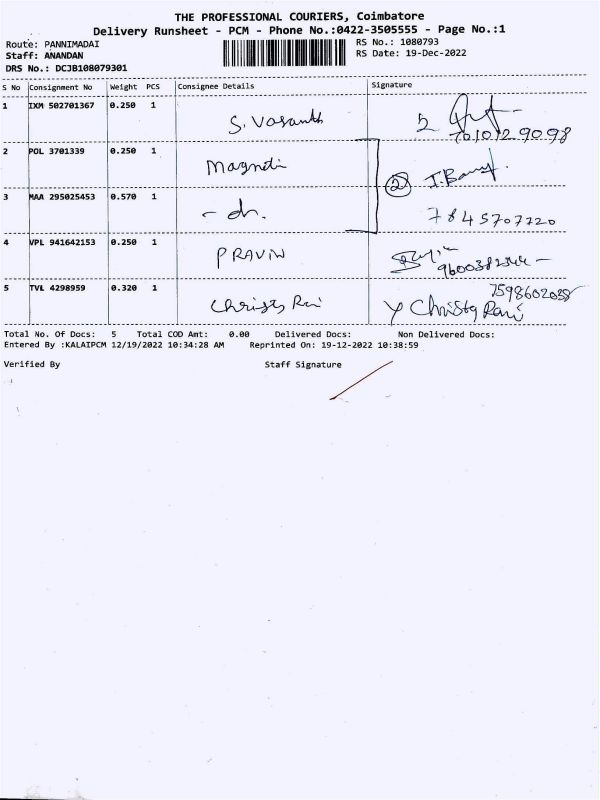 THE PROFESSIONAL COURIERS, Coimbatore
Delivery Runsheet - PCM - Phone No.:0422-3505555 - Page No.:1
Route: PANNIMADAI
RS No.: 1080793
Staff: ANANDAN
RS Date: 19-Dec-2022
DRS No.: DCJB108079301
S No Consignment No Weight PCS Consignee Details Signature
1 IXM 502701367 0.250 1 S. Vasanth
7010129098
2 POL 3701339 0.250 1
② J.
3 MAA 295025453 0.570 1 - do.
7845707720
4 VPL 941642153 0.250 1 PRAVIN
5 TVL 4298959 0.320 1 Christy Rani
7598602038
Christy Rani
Total No. Of Docs: 5 Total COD Amt: 0.00 Delivered Docs: Non Delivered Docs:
Entered By :KALAIPCM 12/19/2022 10:34:28 AM Reprinted On: 19-12-2022 10:38:59
Verified By Staff Signature